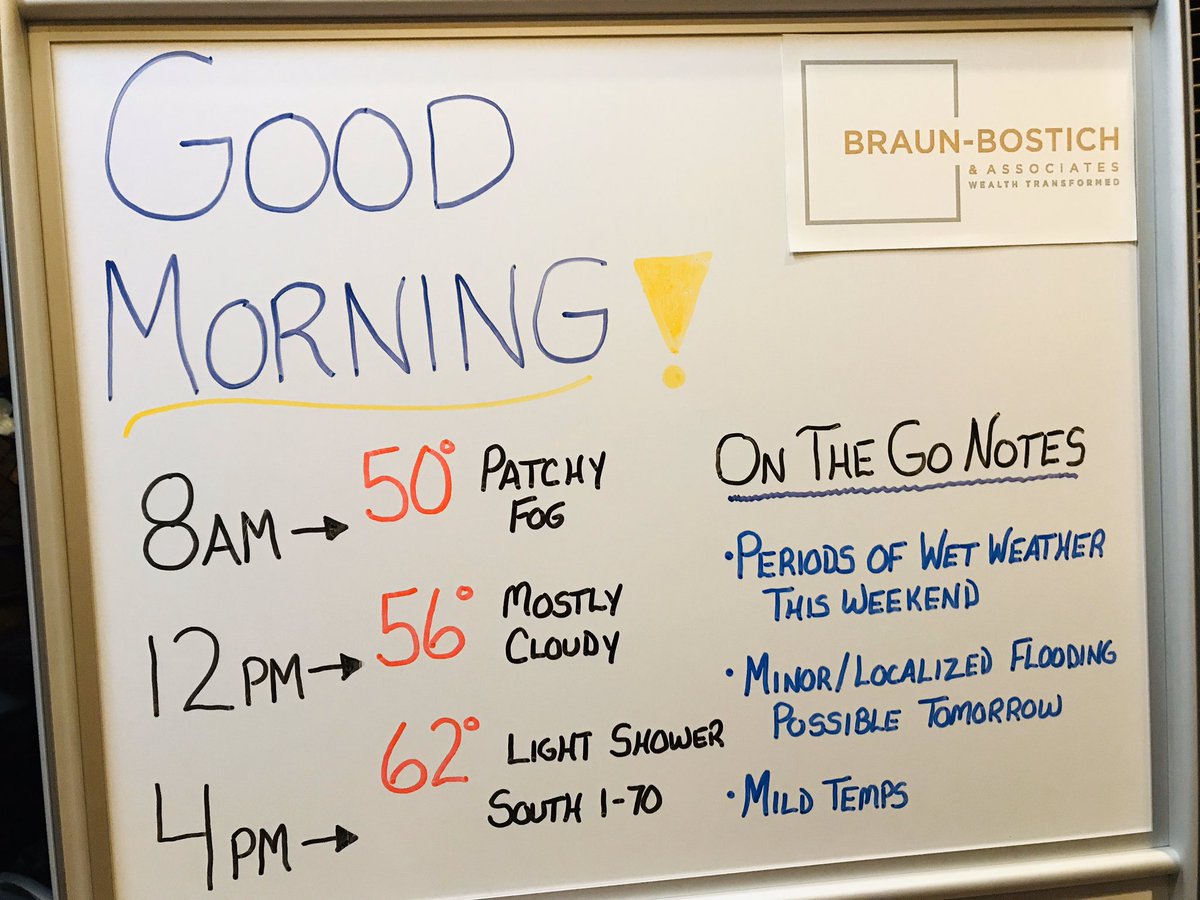 GOOD
MORNING!
BRAUN-BOSTICH
& ASSOCIATES
WEALTH TRANSFORMED
8AM → 50° PATCHY
FOG
12PM → 56° MOSTLY
CLOUDY
4PM → 62° LIGHT SHOWER
SOUTH I-70
ON THE GO NOTES
•PERIODS OF WET WEATHER
THIS WEEKEND
•MINOR/LOCALIZED FLOODING
POSSIBLE TOMORROW
•MILD TEMPS